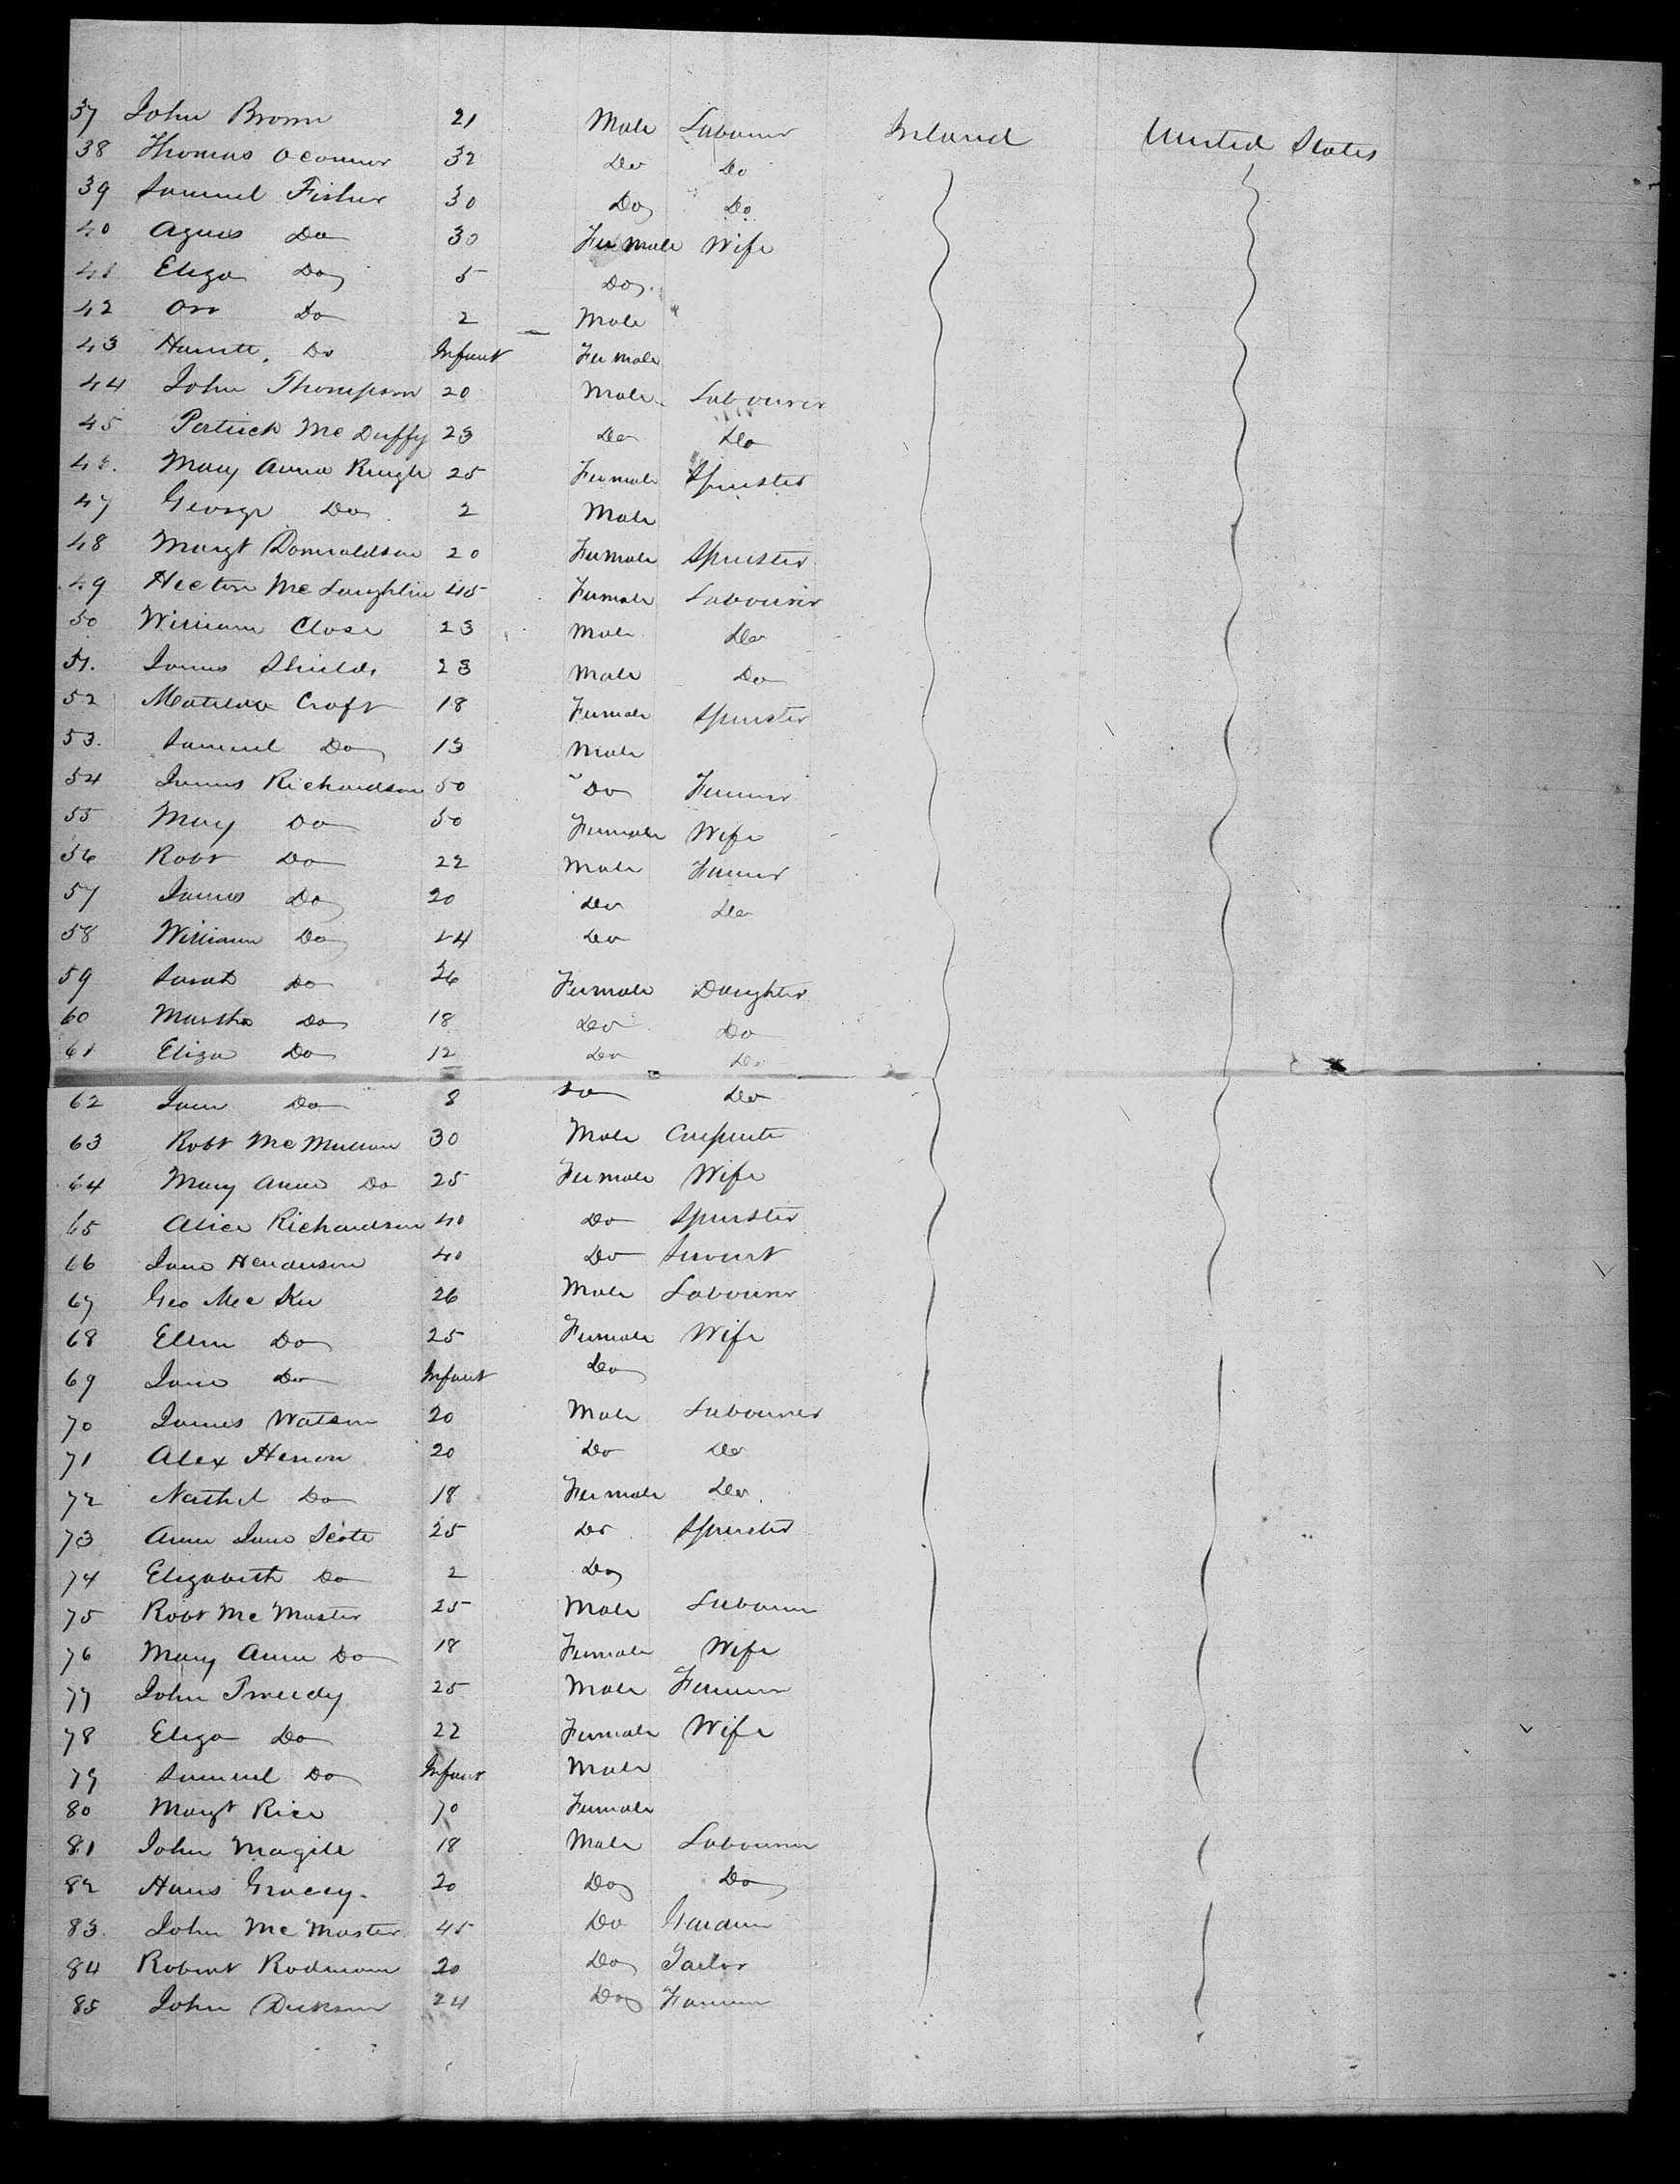 37 John Brown 21 Male Labourer Ireland United States
38 Thomas Oconnor 32 Do Do
39 Samuel Fisher 30 Do Do
40 Agnes Do 30 Female Wife
41 Eliza Do 5 Do
42 Orr Do 2 Male
43 Do Infant Female
44 John Thompson 20 Male Labourer
45 Patrick Mc Duffy 23 Do Do
46. Mary Anna 25 Female Spinster
47 George Do 2 Male
48 Margt Donnaldson 20 Female Spinster
49 Hector Mc Laughlin 45 Female Labourer
50 William Close 23 Male Do
51. James Shields 23 Male Do
52 Matilda Croft 18 Female Spinster
53. Samuel Do 13 Male
54 James Richardson 50 Do Farmer
55 Mary Do 50 Female Wife
56 Robt Do 22 Male Farmer
57 James Do 20 Do Do
58 William Do 14 Do
59 Sarah Do 26 Female Daughter
60 Martha Do 18 Do Do
61 Eliza Do 12 Do Do
62 Jane Do 8 Do Do
63 Robt Mc Mullan 30 Male Carpenter
64 Mary Anne Do 25 Female Wife
65 Alice Richardson 40 Do Spinster
66 Jane Henderson 40 Do Servant
67 Geo Mc Kee 26 Male Labourer
68 Ellen Do 25 Female Wife
69 Jane Do Infant Do
70 James Watson 20 Male Labourer
71 Alex Heron 20 Do Do
72 Do 18 Female Do
73 Anne Jane Scott 25 Do Spinster
74 Elizabeth Do 2 Do
75 Robt Mc Master 25 Male Labourer
76 Mary Anne Do 18 Female Wife
77 John Tweedy 25 Male Farmer
78 Eliza Do 22 Female Wife
79 Samuel Do Infant Male
80 Margt Rice 70 Female
81 John Magill 18 Male Labourer
82 Hans Gracey. 20 Do Do
83. John Mc Master 45 Do
84 Robert Rodman 20 Do Tailor
85 John Dickson 24 Do Farmer